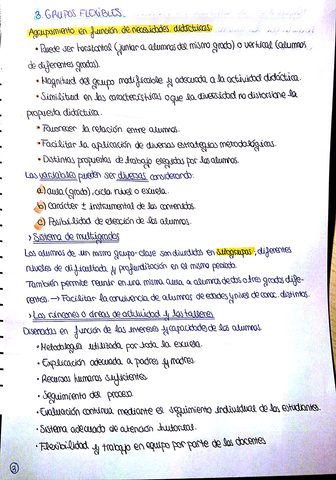 3. GRUPOS FLEXIBLES
Agrupamiento en función de necesidades didácticas.
• Puede ser horizontal (juntar a alumnos del mismo grado) o vertical (alumnos
de diferentes grados).
• Magnitud del grupo modificable y adecuada a la actividad didáctica.
• Similitud en las características o que la diversidad no distorsione la
propuesta didáctica.
• Favorecer la relación entre alumnos.
• Facilitar la aplicación de diversas estrategias metodológicas.
• Distintas propuestas de trabajo elegidas por los alumnos.
Las variables pueden ser diversas considerando:
a) aula (grado), ciclo, nivel o escuela.
b) Carácter ± instrumental de los contenidos.
c) Posibilidad de elección de los alumnos.
> Sistema de multigrados
Los alumnos de un mismo grupo-clase son divididos en subgrupos, diferentes
niveles de dificultad y profundización en el mismo periodo.
También permite reunir en una misma aula a alumnos de dos o tres grados dife-
rentes. → Facilitar la convivencia de alumnos de edades y nivel de conoc. distintos.
> Los rincones o áreas de actividad y los talleres
Diseñadas en función de los intereses y capacidades de los alumnos
• Metodología utilizada por toda la escuela.
• Explicación adecuada a padres y madres.
• Recursos humanos suficientes.
• Seguimiento del proceso.
• Evaluación continua mediante el seguimiento individual de los estudiantes.
• Sistema adecuado de atención tutorial.
• Flexibilidad y trabajo en equipo por parte de los docentes